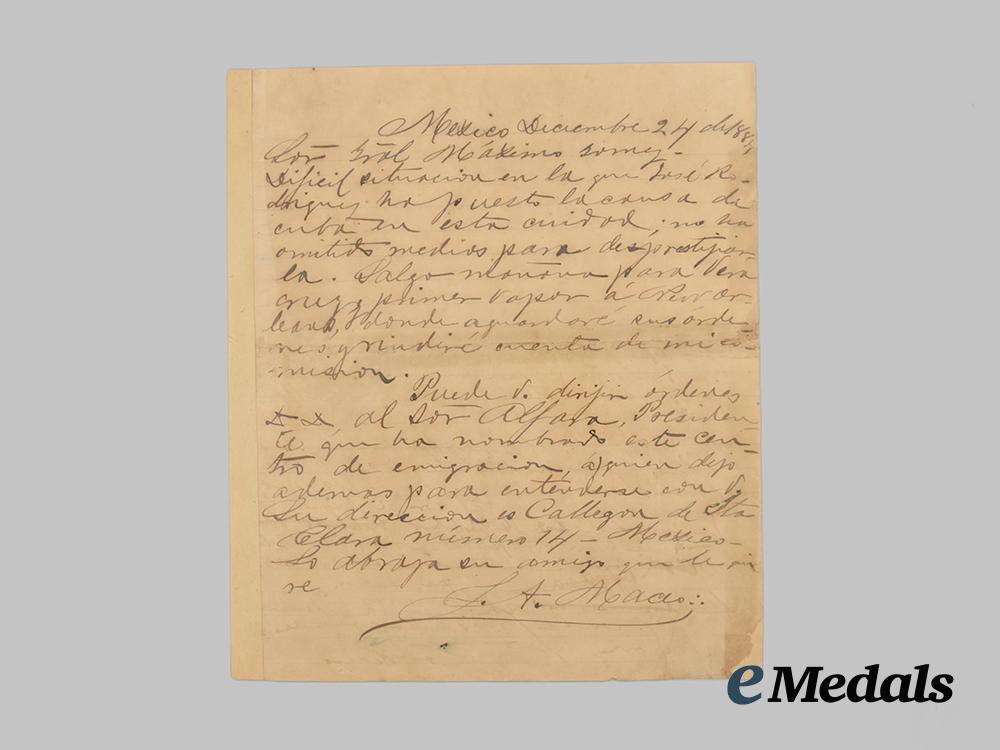 Mexico Diciembre 24 de 188
Sor Gral Máximo Gomez -
Dificil situacion en la que José Ro-
driguez ha puesto la causa de
cuba en esta cuidad; no ha
omitido medios para desprestijiar-
la. Salgo mañana para Vera
cruz y primer vapor á New Or-
leans, donde aguardaré sus orde-
nes y rindiré cuenta de mi co-
mision.
Puede V. dirijir órdenes
al Sor Alfara, Presiden-
te que ha nombrado este cen-
tro de emigracion, á quien dejo
ademas para entenderse con V.
Su direccion es Callegon de Sta
Clara número 14 - Mexico -
Lo abraza su amigo que le mi
re
A. Maceo
eMedals